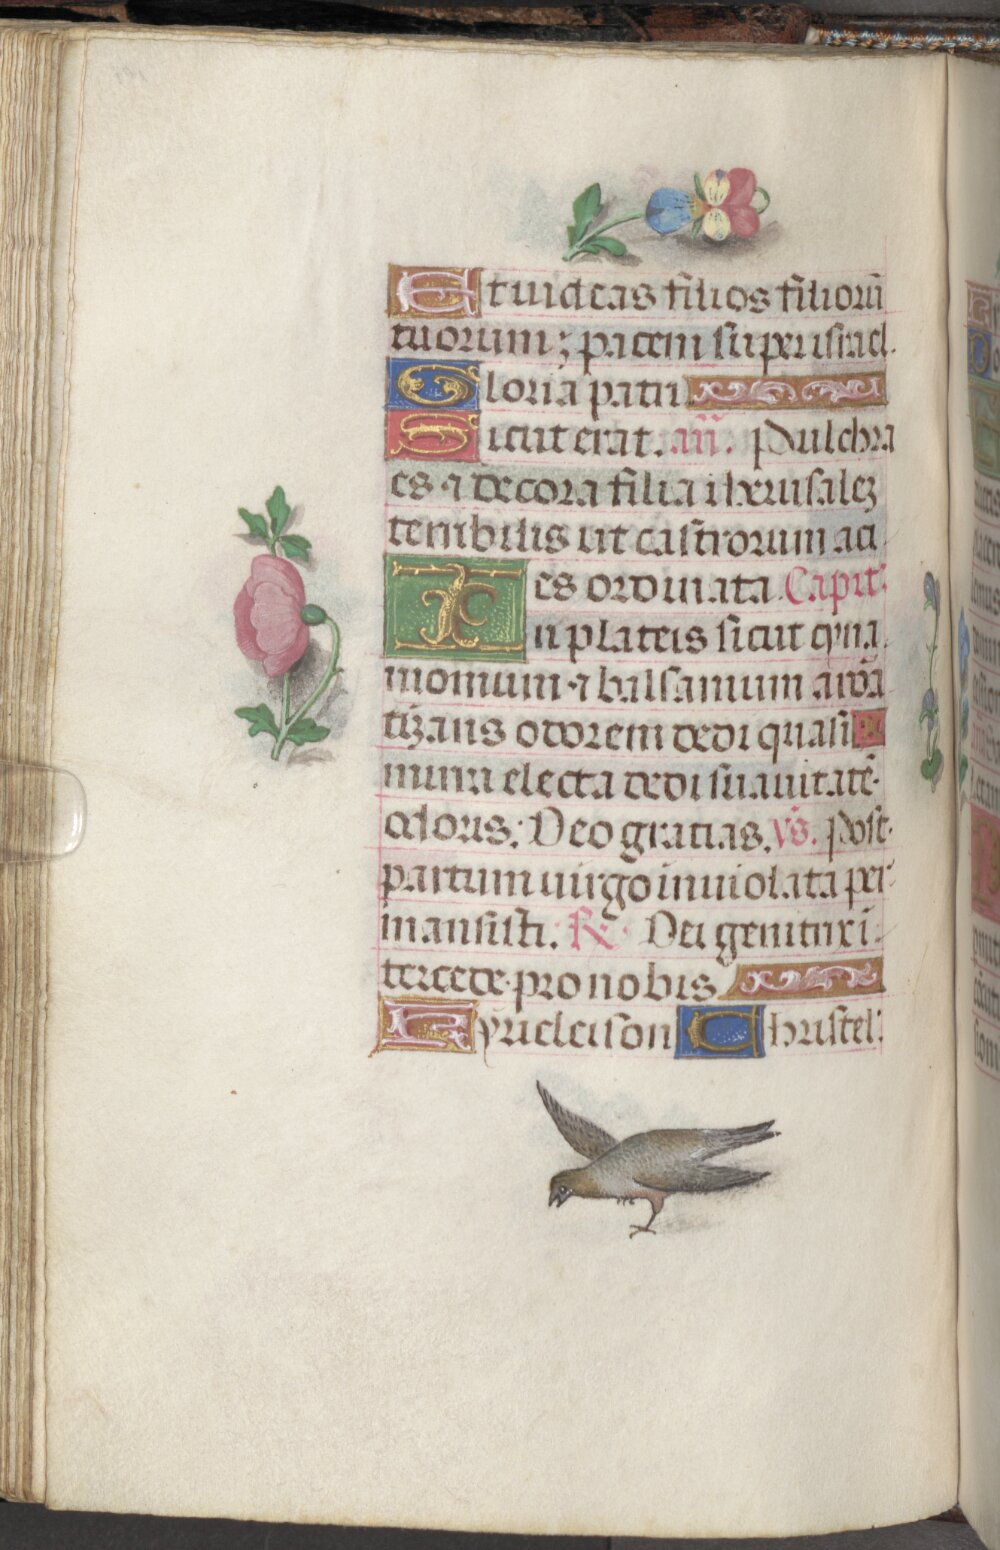 Et videas filios filiorū
tuorum; pacem super israel.
Gloria patri
Sicut erat. añ. Pulchra
es ⁊ decora filia iherusalez
terribilis ut castrorum aci
es ordinata. Capit̄.
In plateis sicut cyna
momum ⁊ balsamum aroā
tizans odorem dedi quasi
mirra electa dedi suauitatē
odoris. Deo gratias. v̄s. Post
partum uirgo inuiolata per
mansisti. R̄. Dei genitrix i
tercede pro nobis
Kyrieleison Christel'.